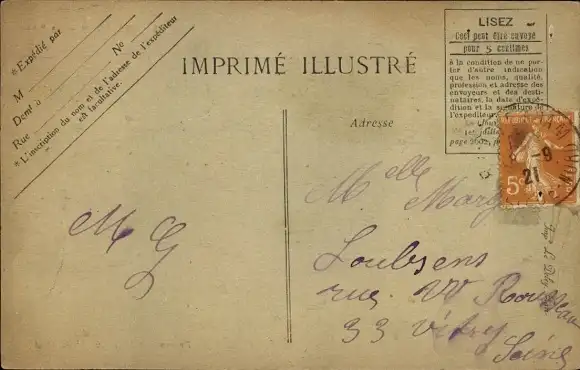 * Expédié par
M
Demt à
Rue
No
* L'inscription du nom et de l'adresse de l'expéditeur
est facultative.
IMPRIMÉ ILLUSTRÉ
LISEZ
Ceci peut être envoyé
pour 5 centimes
à la condition de ne por-
ter d'autre indication
que les noms, qualité,
profession et adresse des
envoyeurs et des desti-
nataires, la date d'expé-
dition et la signature de
l'expéditeur.
Adresse
5c
-9
21
Melle Marg
Loubsens
rue Rousseau
33 Vitry
Seine
M G